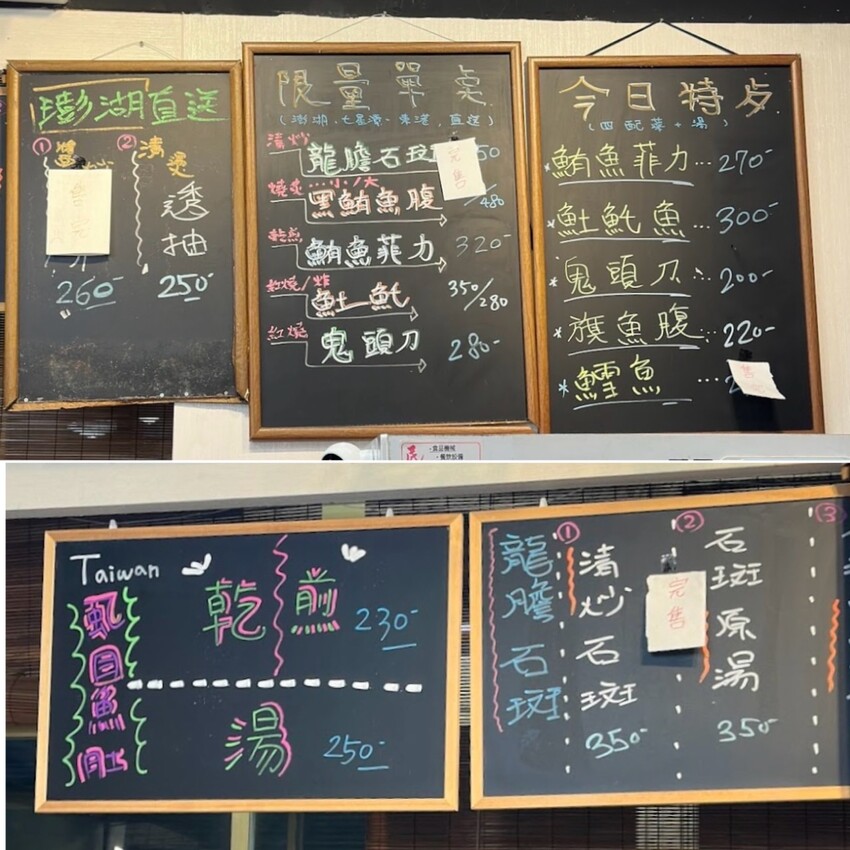 澎湖直送
①
售完
260-
②清燙
透抽
250-
限量單點
(澎湖、七星潭、東港、直送)
清炒
龍膽石斑
完售
50
燒炙...小/大
黑鮪魚腹
/480
乾煎
鮪魚菲力 320-
紅燒/炸
魠 350/280
紅燒
鬼頭刀 280-
今日特歺
(四配菜+湯)
*鮪魚菲力...270-
*魠魚...300-
*鬼頭刀...200-
*旗魚腹...220-
*鱈魚...2
食品機械
餐飲設備
Taiwan
虱目魚肚
乾煎 230-
湯 250-
龍膽石斑
①
清炒石斑
350-
②
完售
石斑原湯
350-
③